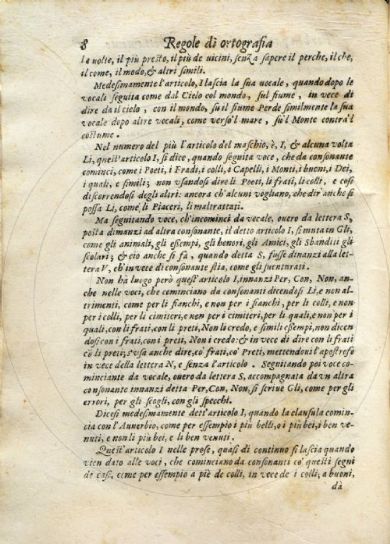 8 Regole di ortografia
le volte, il più presto, il più de uicini, senza sapere il perche, il che,
il come, il modo, & altri simili.
Medesimamente l'articolo, I lascia la sua uocale, quando dopo le
vocali seguita come dal Cielo col mondo, sul fiume, in vece di
dire da il cielo, con il mondo, sù il fiume Perde similmente la sua
vocale dapo altre vocali, come verso'l mare, sù'l Monte contra'l
costume.
Nel numero del più l'articolo del maschio, è, I, & alcuna volta
Li, quest'articolo I, si dice, quando seguita voce, che da consonante
cominci, come i Poeti, i Fradi, i colli, i Capelli, i Monti, i buoni, i Dei,
i quali, e simili; non usandosi dire li Poeti, li frati, li colti, e così
discorrendosi degli altri: ancora ch'alcuni vogliano, che dir anche si
possa Li, come, li Piaceri, li maltrattati.
Ma seguitando voce, ch'incominci da vocale, ouero da lettera S,
posta dinanzi ad altra consonante, il detto articolo I, si muta in Gli,
come gli animali, gli esempi, gli honori, gli Amici, gli Sbanditi gli
scolari; & ciò anche si fà, quando detta S, fusse dinanzi alla let-
tera V, ch'in vece di consonante stia, come gli suenturati.
Non hà luogo però quest'articolo I, innanzi Per, Con, Non, an-
che nelle voci, che cominciano da consonanti dicendosi Li, e non al-
trimenti, come per li fianchi, e non per i fianchi, per li colli, e non
per i colli, per li cimiteri, e non per i cimiteri, per li quali, e non per i
quali, con li frati, con li preti, Non li credo, e simili esempi, non dicen
dosi con i frati, con i preti, Non i credo: & in vece di dire con li frati
cō li preti; s'usa anche dire, co' frati, co' Preti, mettendoui l'apostrofo
in vece della lettera N, e senza l'articolo. Seguitando poi voce co-
minciante da vocale, ouero da lettera S, accompagnata da vn altra
consonante innanzi detta Per, Con, Non, si scriue Gli, come per gli
errori, per gli scogli, con gli specchi.
Dicesi medesimamente dett'articolo I, quando la clausula comin-
cia con l'Auuerbio, come per essempio i più belli, o i più bei, i ben ve-
nuti, e non li più bei, e li ben venuti.
Quest'articolo I nelle prose, quasi di continuo si lascia quando
vien dato alle voci, che cominciano da consonanti co' questi segni
de casi, come per essempio a piè de colli, in vece de i colli, a buoni,
dà